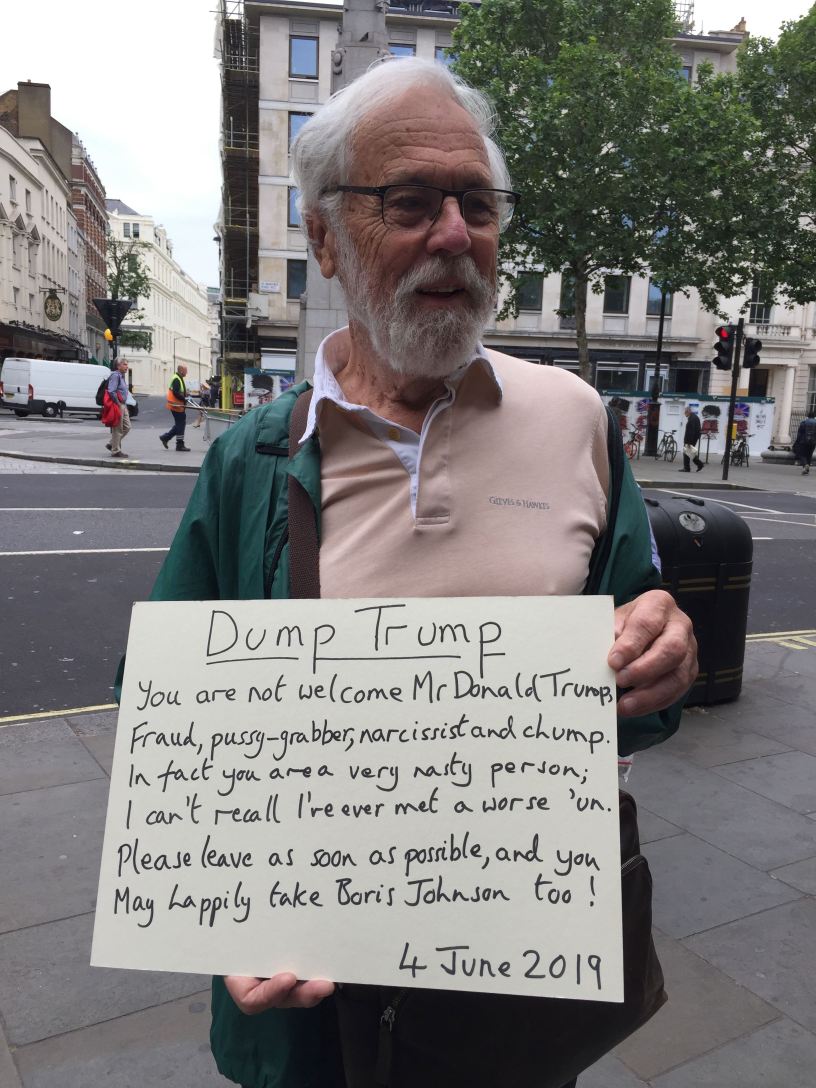 GIEVES & HAWKES
Dump Trump
You are not welcome Mr Donald Trump,
Fraud, pussy-grabber, narcissist and chump.
In fact you are a very nasty person;
I can't recall I've ever met a worse 'un.
Please leave as soon as possible, and you
May happily take Boris Johnson too!
4 June 2019